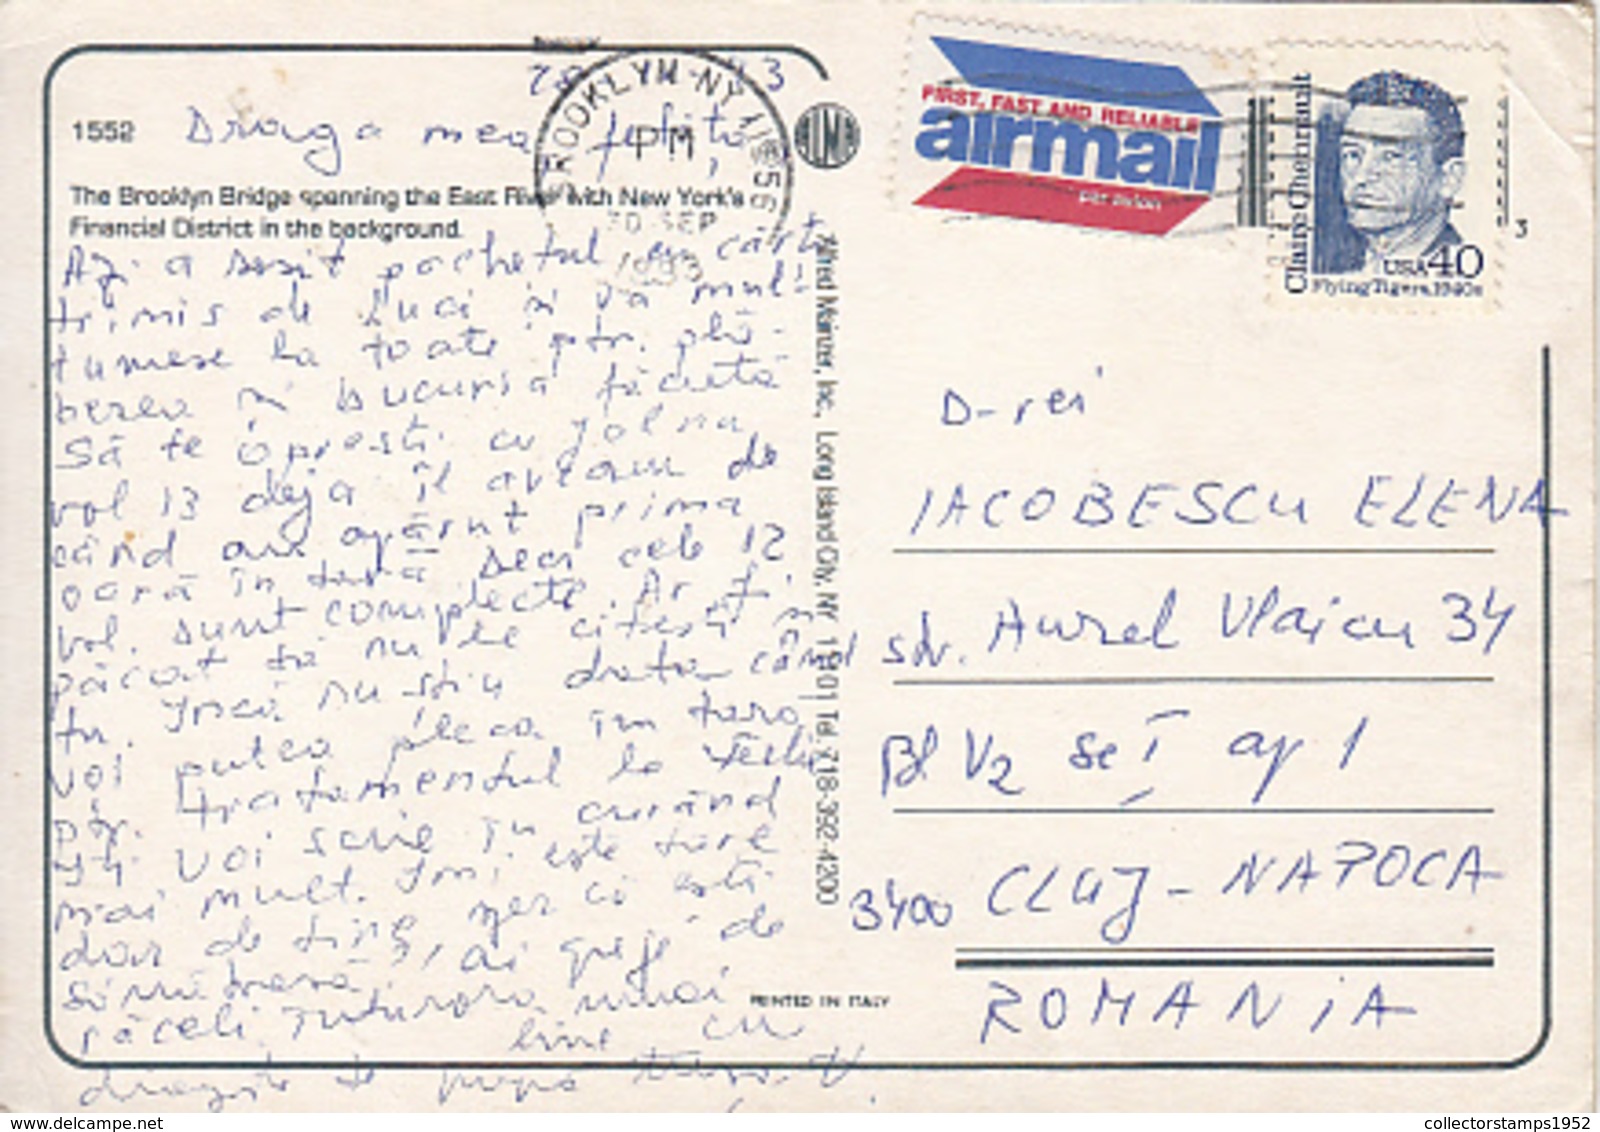 1552
Draga mea fetiță,
The Brooklyn Bridge spanning the East River with New York's
Financial District in the background.
BROOKLYN NY 11256
PM
30 SEP
1993
Azi a sosit pachetul cu cărți
trimis de Luci și vă mul-
țumesc la toate ptr. plă-
cerea și bucuria făcută
Să te oprești cu Jolna
vol 13 deja îl aveam de
când au apărut prima
oară în țară. Deci cele 12
vol. sunt complecte. Ar fi
păcat să nu le citești și
tu. Încă nu știu data când
voi putea pleca în țară
ptr. tratamentul la
94 voi scrie în curând
mai mult. Îmi este tare
dor de tine, vezi că ești
să nu
răceli. Tuturora numai
bine cu
dragoste te pupă
Alfred Mainzer, Inc., Long Island City, NY 11101 Tel. 718-392-4200
PRINTED IN ITALY
FIRST, FAST AND RELIABLE
airmail
par avion
Claire Chennault
USA 40
Flying Tigers, 1940s
3
D-rei
IACOBESCU ELENA
str. Aurel Vlaicu 34
Bl V2 sc I ap 1
3400 CLUJ-NAPOCA
ROMANIA
collectorstamps1952